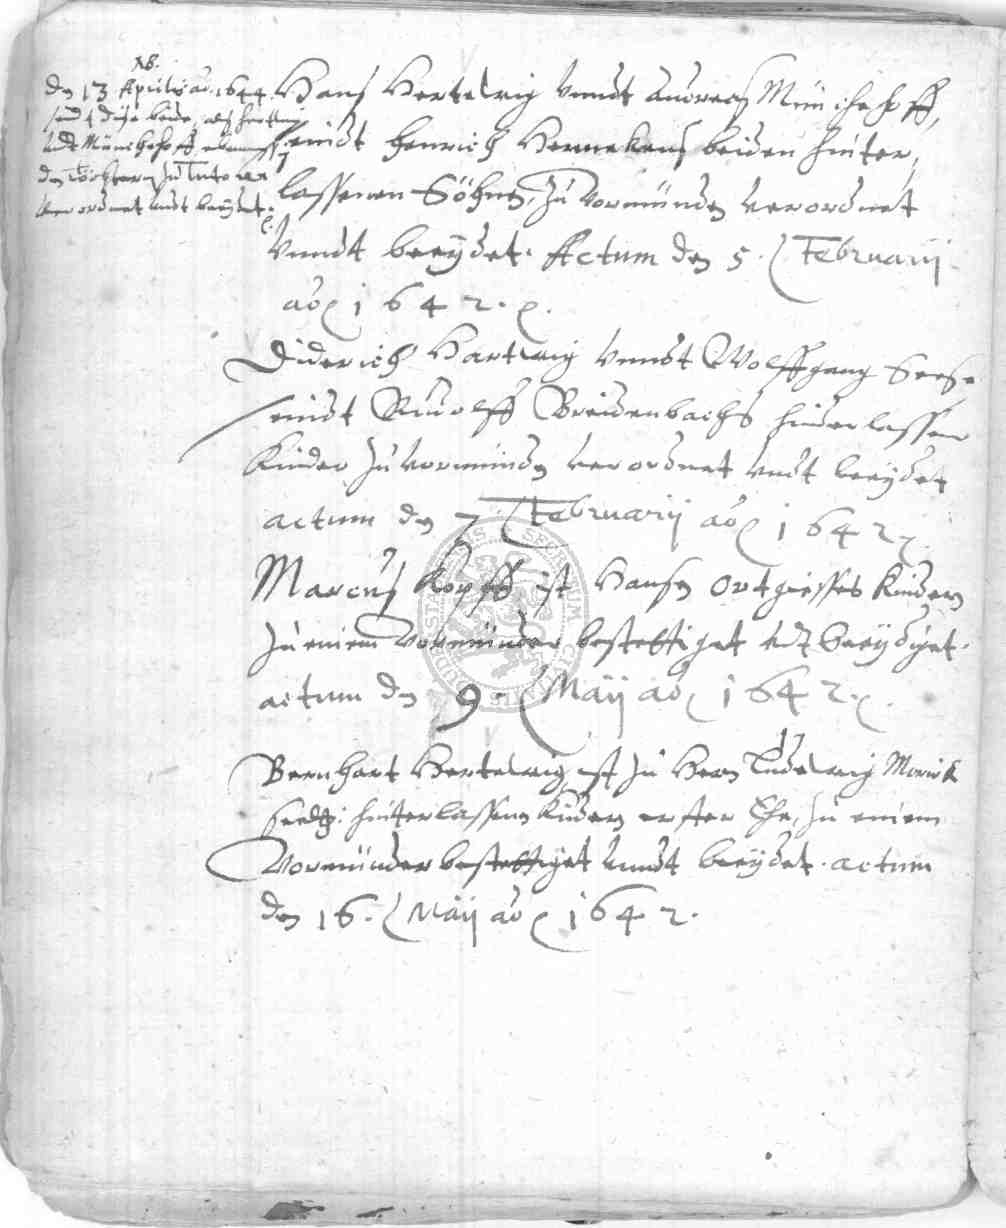 NB.
den 13 Aprilis ao. 1644.
sind diese beide, als Hertwig
undt Münchehoff ebenmessig
den Töchtern zu Tutoren
verordnet undt beeydet.
Hans Hertwig unndt Andreas Münchehoff,
seindt Henrich Hermekens beiden hinter,
lassenen Söhnen, zu Vormünden verordnet
unndt beeÿdet. Actum den 5. Februarij
ao 1642.
Diderich Hartwig unndt Wolffgang Seese
seindt Rudolff Breidenbachs hinderlassen
Kinder zu vormünden verordnet undt beeÿdet
actum den 7. Februarij ao 1642
Marcus Kopff ist Hansen Ortgiesses Kindern
zu einem Vormünder bestettiget undt beeÿdiget.
actum den 9. Maij ao 1642.
Bernhart Hertwig ist zu Hern Ludewig
hinterlassenen Kindern erster Ehe, zu einem
Vormünder bestettiget unndt beeÿdet. actum
den 16. Maij ao 1642.